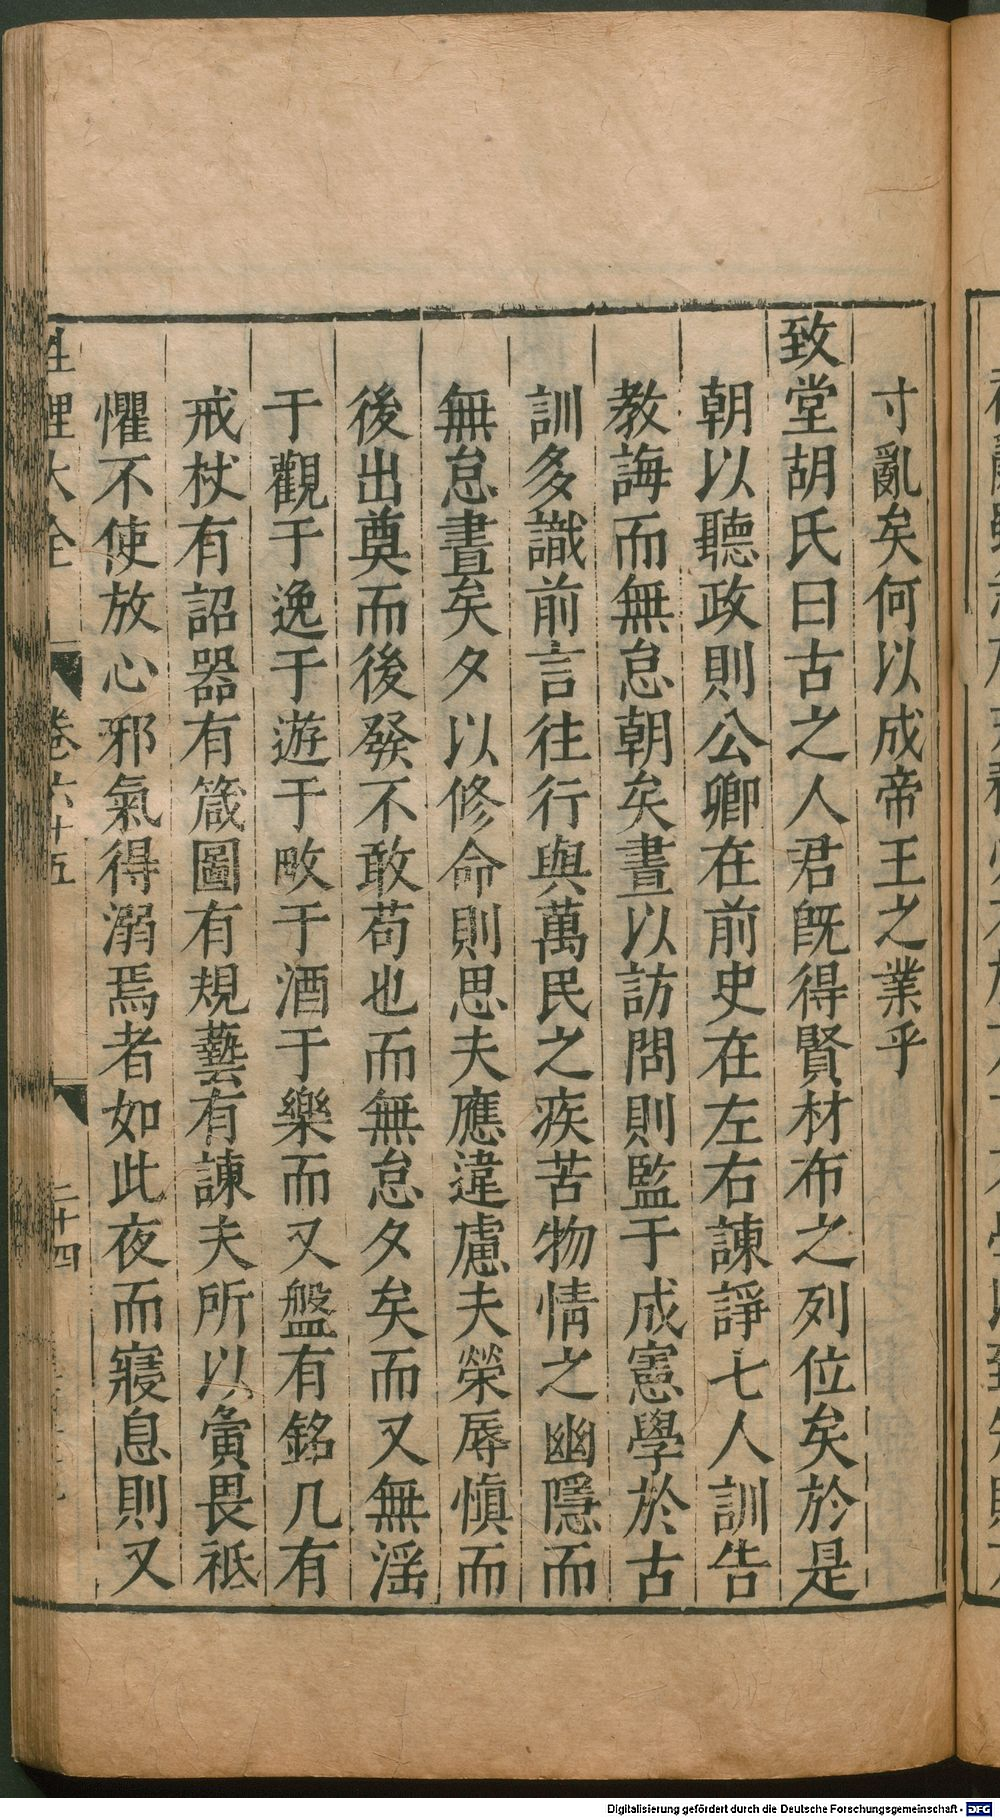 寸亂矣何以成帝王之業乎
致堂胡氏曰古之人君旣得賢材布之列位矣於是
朝以聽政則公卿在前史在左右諫諍七人訓告
教誨而無怠朝矣晝以訪問則監于成憲學於古
訓多識前言往行與萬民之疾苦物情之幽隱而
無怠晝矣夕以修命則思夫應違慮夫榮辱愼而
後出奠而後發不敢苟也而無怠夕矣而又無滛
于觀于逸于遊于畋于酒于樂而又盤有銘几有
戒杖有詔器有箴圖有規藝有諫夫所以夤畏祗
懼不使放心邪氣得溺焉者如此夜而寢息則又
性理大全 卷六十五 二十四
Digitalisierung gefördert durch die Deutsche Forschungsgemeinschaft - DFG